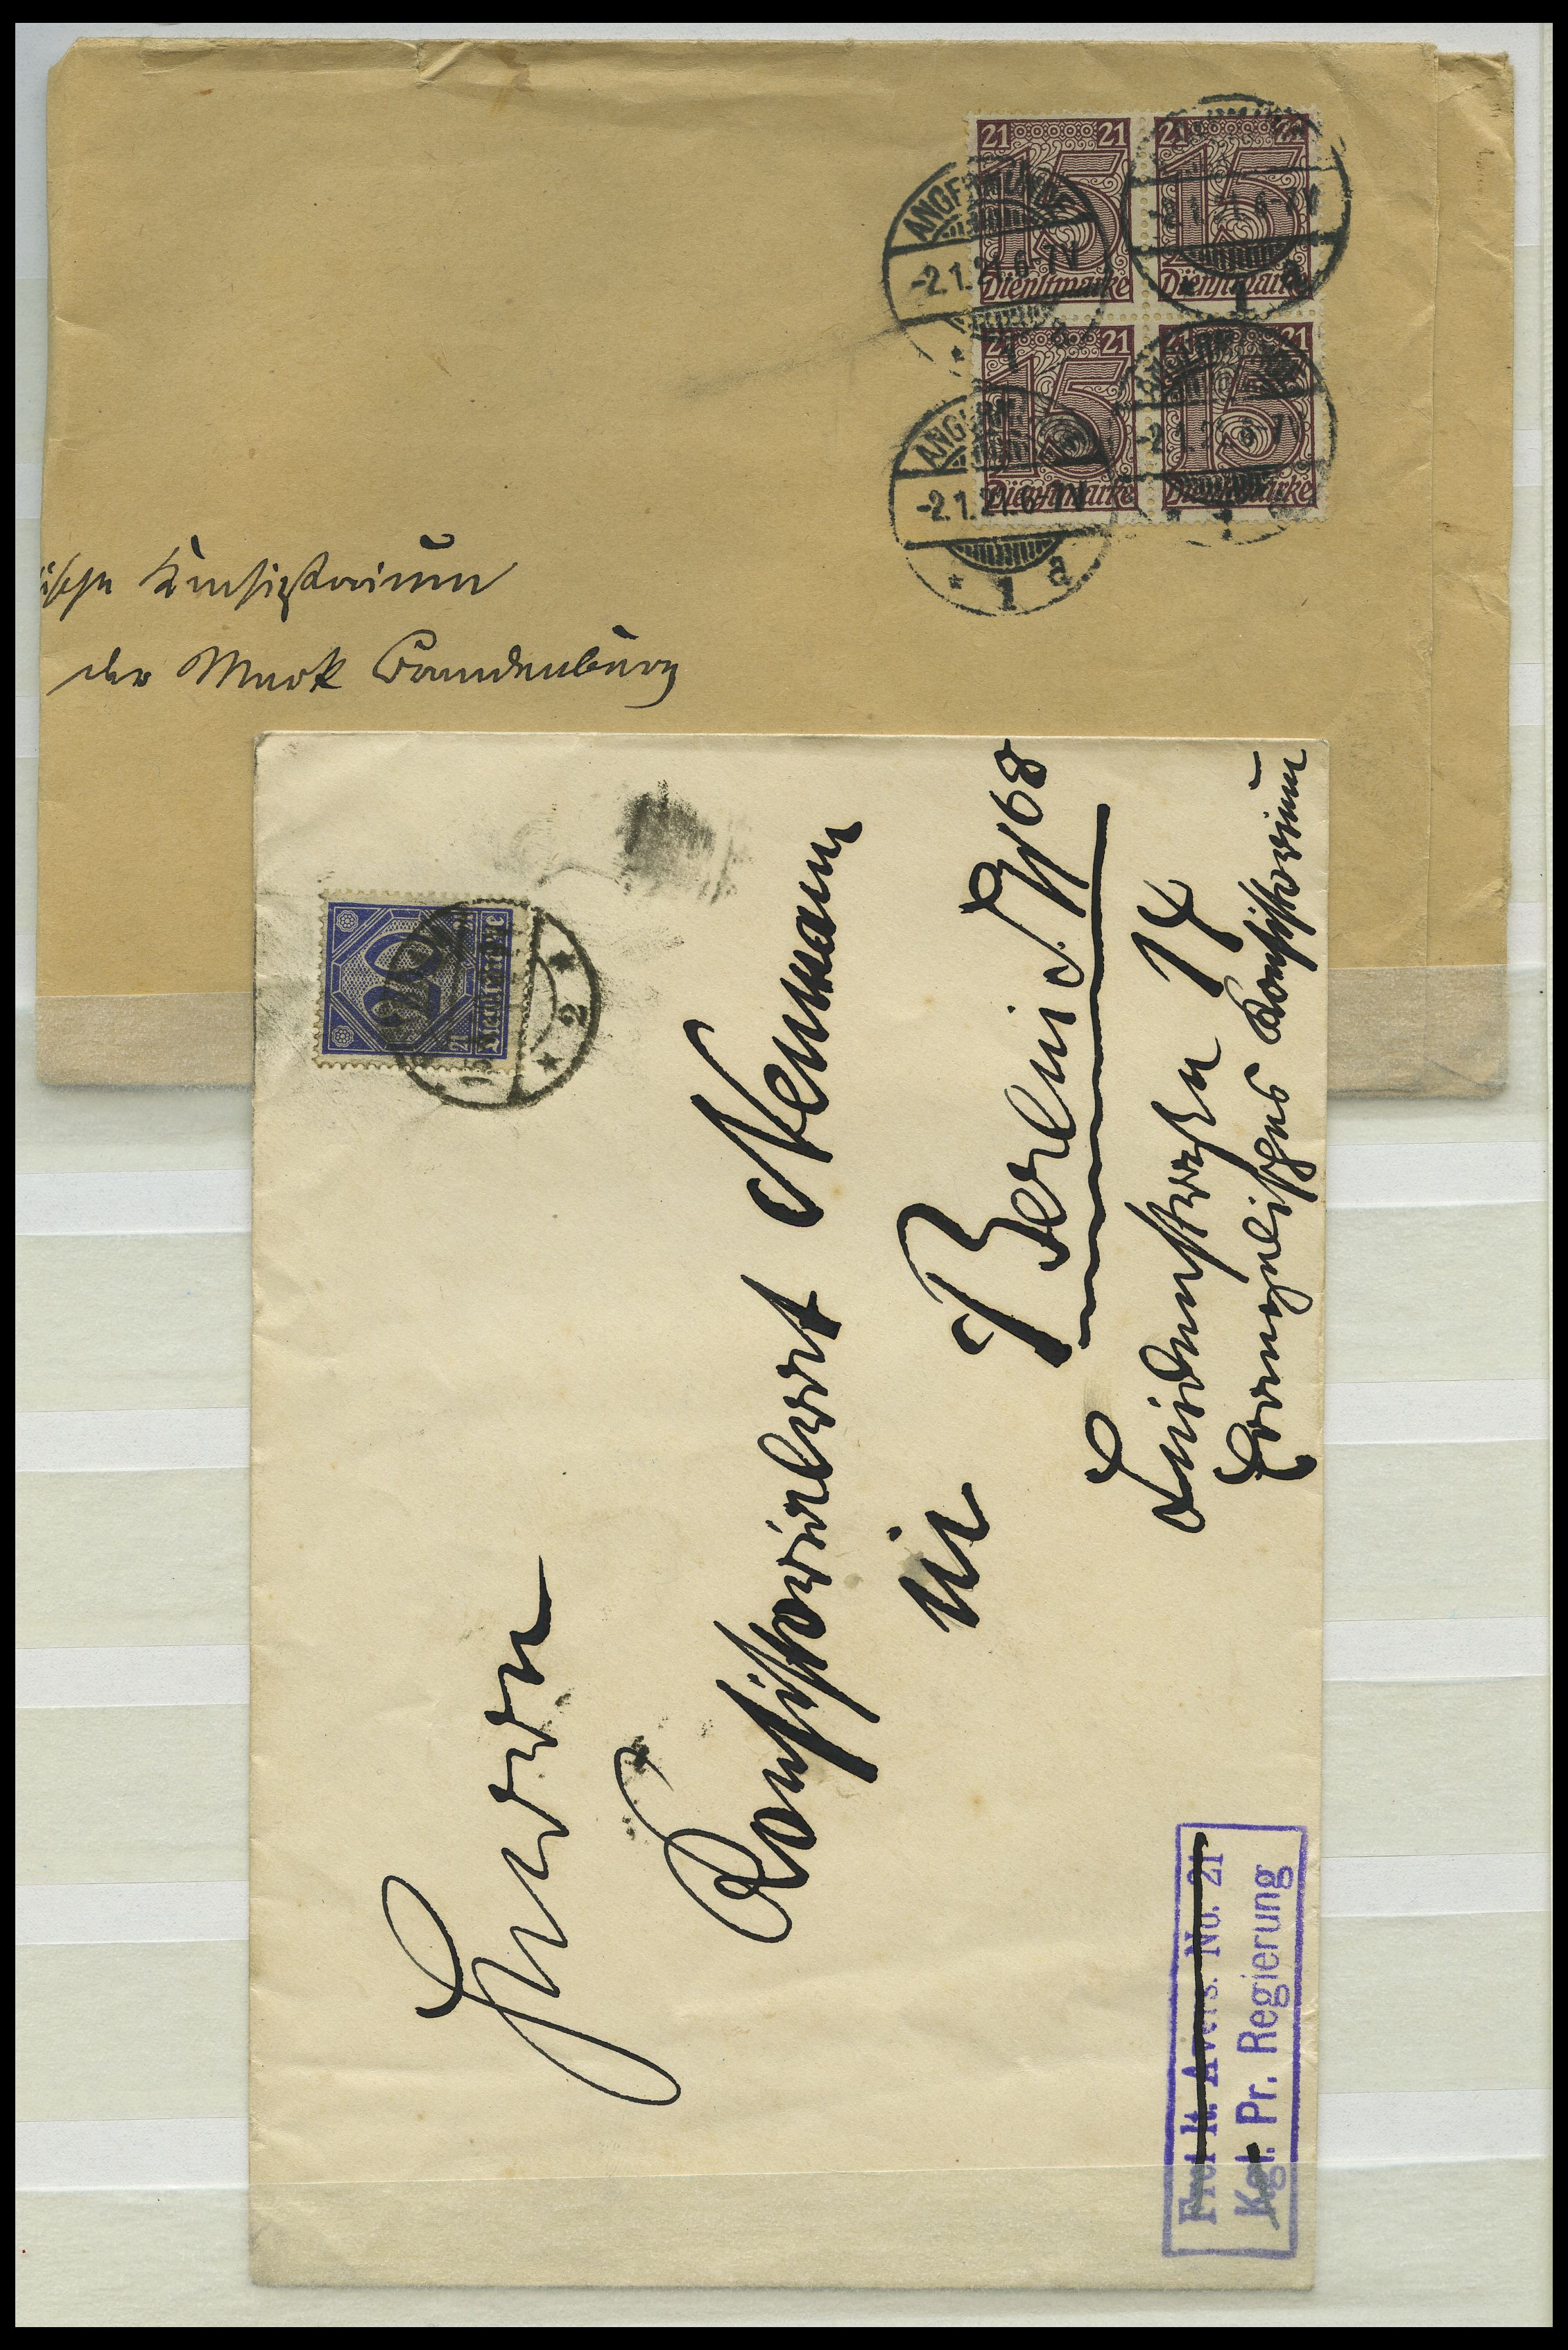 21 21
15
Dienstmarke
21 21
15
Dienstmarke
21 21
15
Dienstmarke
21 21
15
Dienstmarke
ANGERMÜNDE
-2.1.21.6-7V
* 1 a
-2.1.21.6-7V
* 1 a
ANGERM
-2.1.21.6-7V
* 1 a
-2.1.2 6-7V
ische Konsistorium
der Mark Brandenburg
20
21
Dienstmarke
* 2 *
Herrn
Konsistorialrat Neumann
in Berlin S.W. 68
Lindenstraße 14
Evangelisches Konsistorium
Frei lt. Avers. No. 21
Kgl. Pr. Regierung